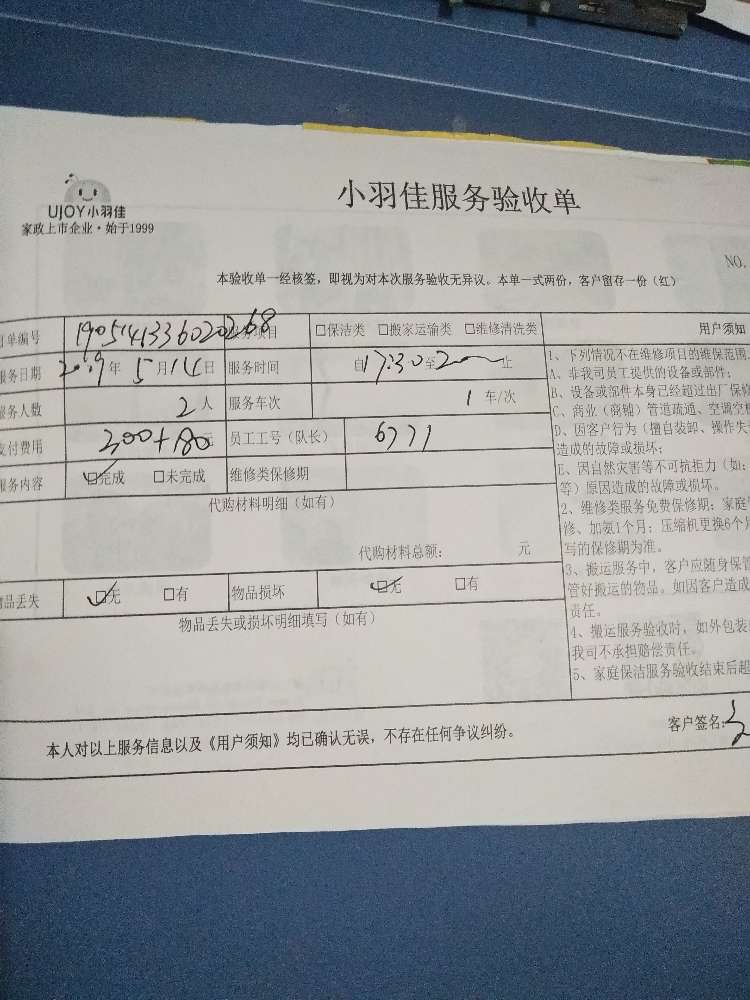 小羽佳服务验收单
UJOY小羽佳
家政上市企业·始于1999
NO.
本验收单一经核签，即视为对本次服务验收无异议。本单一式两份，客户留存一份（红）
单编号 项目 □保洁类 □搬家运输类 □维修清洗类 用户须知
服务日期 2019年5月14日 服务时间 自17:30至 止
服务人数 2人 服务车次 1车/次
支付费用 员工工号（队长） 6771
服务内容 ☑完成 □未完成 维修类保修期
代购材料明细（如有）
代购材料总额： 元
物品丢失 ☑无 □有 物品损坏 ☑无 □有
物品丢失或损坏明细填写（如有）
1、下列情况不在维修项目的维保范围
A、非我司员工提供的设备或部件；
B、设备或部件本身已经超过出厂保修
C、商业（商铺）管道疏通、空调空
D、因客户行为（擅自装卸、操作失
造成的故障或损坏；
E、因自然灾害等不可抗拒力（如：
等）原因造成的故障或损坏。
2、维修类服务免费保修期：家庭
修、加氨1个月；压缩机更换6个月
写的保修期为准。
3、搬运服务中，客户应随身保管
管好搬运的物品。如因客户造成
责任。
4、搬运服务验收时，如外包装
我司不承担赔偿责任。
5、家庭保洁服务验收结束后超
本人对以上服务信息以及《用户须知》均已确认无误，不存在任何争议纠纷。
客户签名：